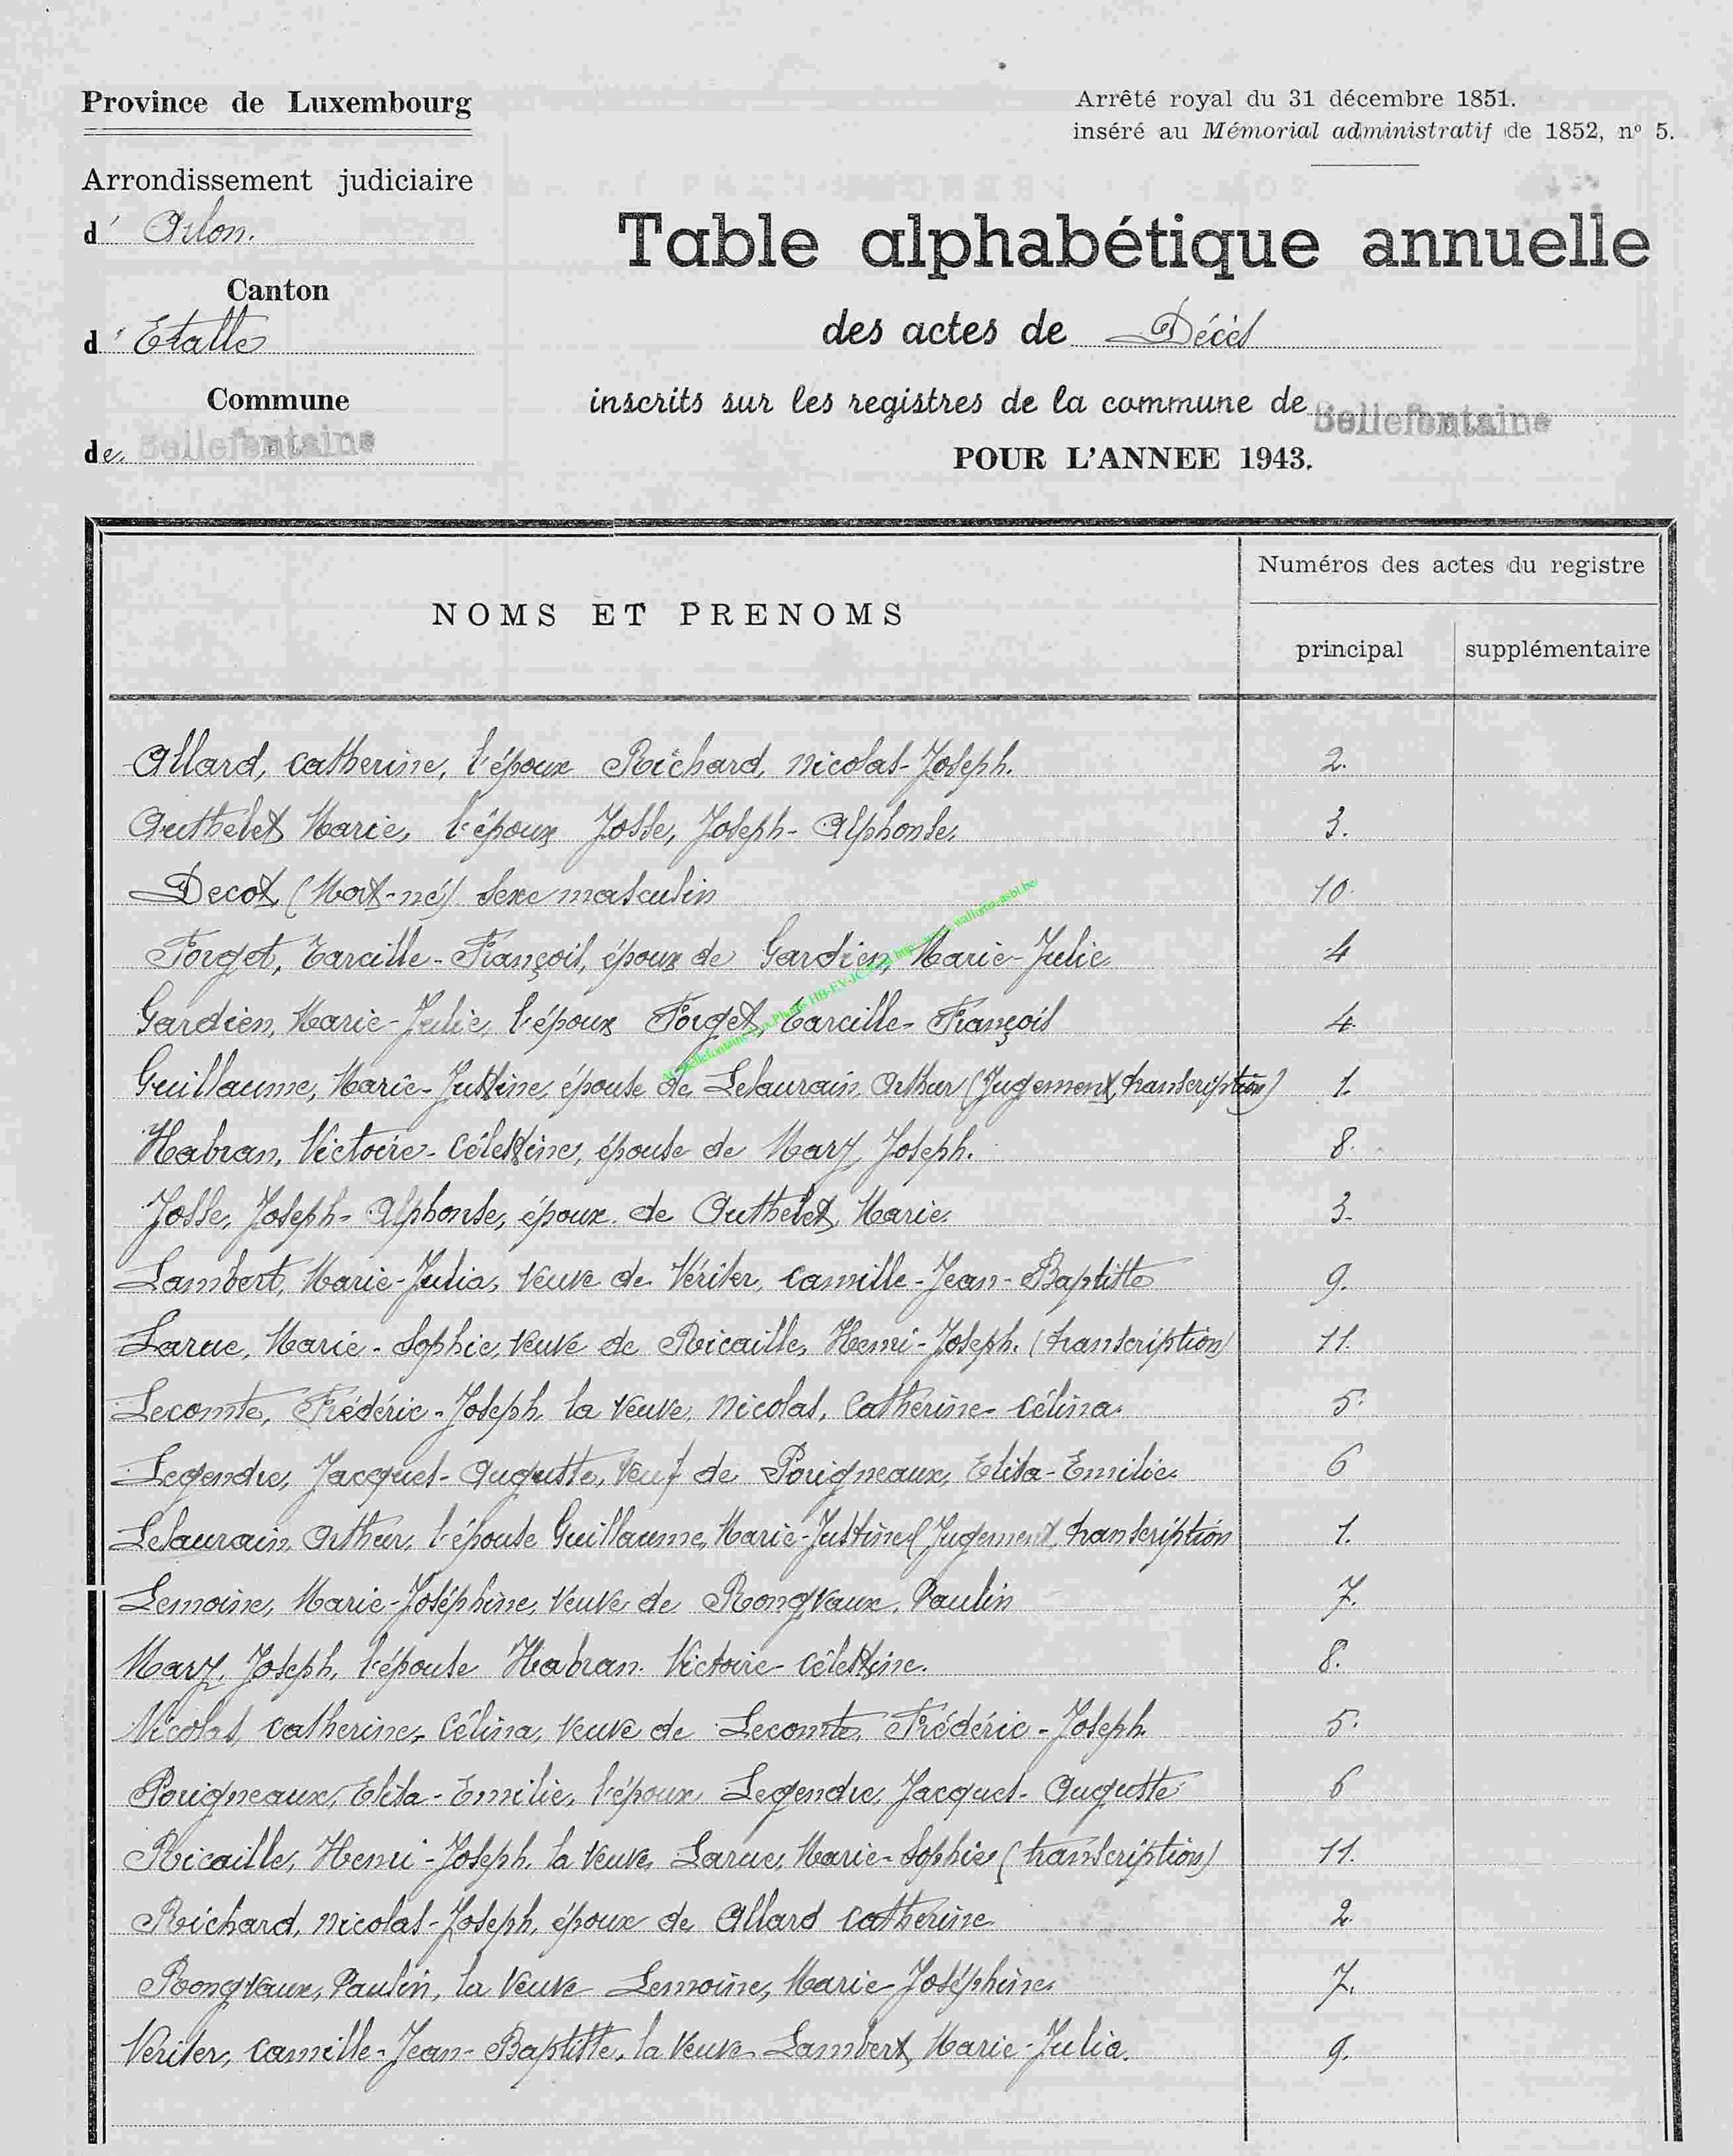 Province de Luxembourg
Arrêté royal du 31 décembre 1851.
inséré au Mémorial administratif de 1852, nº 5.
Arrondissement judiciaire
d' Arlon.
Table alphabétique annuelle
Canton
d' Etalle
des actes de Décès
Commune
inscrits sur les registres de la commune de Bellefontaine
de Bellefontaine
POUR L'ANNEE 1943.
NOMS ET PRENOMS
Numéros des actes du registre
principal supplémentaire
Allard, Catherine, l'époux Richard, Nicolas-Joseph. 2.
Authelet Marie, l'époux Josse, Joseph-Alphonse. 3.
Decot (Mort-né) sexe masculin 10
Forget, Tarcille-François, époux de Gardien, Marie-Julie 4
Gardien, Marie-Julie, l'époux Forget, Tarcille-François 4.
Guillaume, Marie-Justine, épouse de Lelaurain, Arthur (Jugement, transcription) 1.
Habran, Victoire-Célestine, épouse de Mary, Joseph. 8.
Josse, Joseph-Alphonse, époux de Authelet, Marie. 3.
Lambert, Marie-Julia, veuve de Vériter, Camille-Jean-Baptiste 9.
Larue, Marie-Sophie, veuve de Ricaille, Henri-Joseph. (transcription) 11.
Lecomte, Frédéric-Joseph, la veuve, Nicolas, Catherine-Célina. 5.
Legendre, Jacques-Auguste, veuf de Porigneaux, Elisa-Emilie. 6
Lelaurain, Arthur, l'épouse Guillaume, Marie-Justine (Jugement, transcription 1.
Lemoine, Marie-Joséphine, veuve de Rongvaux, Paulin 7.
Mary, Joseph, l'épouse Habran, Victoire-Célestine. 8.
Nicolas, Catherine, Célina, veuve de Lecomte, Frédéric-Joseph. 5.
Porigneaux, Elisa-Emilie, l'époux, Legendre, Jacques-Auguste 6
Ricaille, Henri-Joseph, la veuve, Larue, Marie-Sophie (transcription) 11.
Richard, Nicolas-Joseph, époux de Allard Catherine 2.
Rongvaux, Paulin, la veuve Lemoine, Marie-Joséphine. 7.
Veriter, Camille-Jean-Baptiste, la veuve Lambert, Marie-Julia. 9.